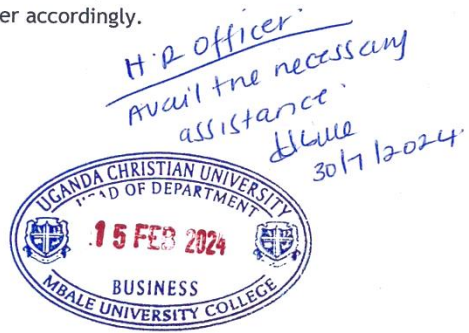 er accordingly.
H.R Officer.
Avail the necessary
assistance.
30/7/2024.
UGANDA CHRISTIAN UNIVERSITY
HEAD OF DEPARTMENT
15 FEB 2024
BUSINESS
MBALE UNIVERSITY COLLEGE